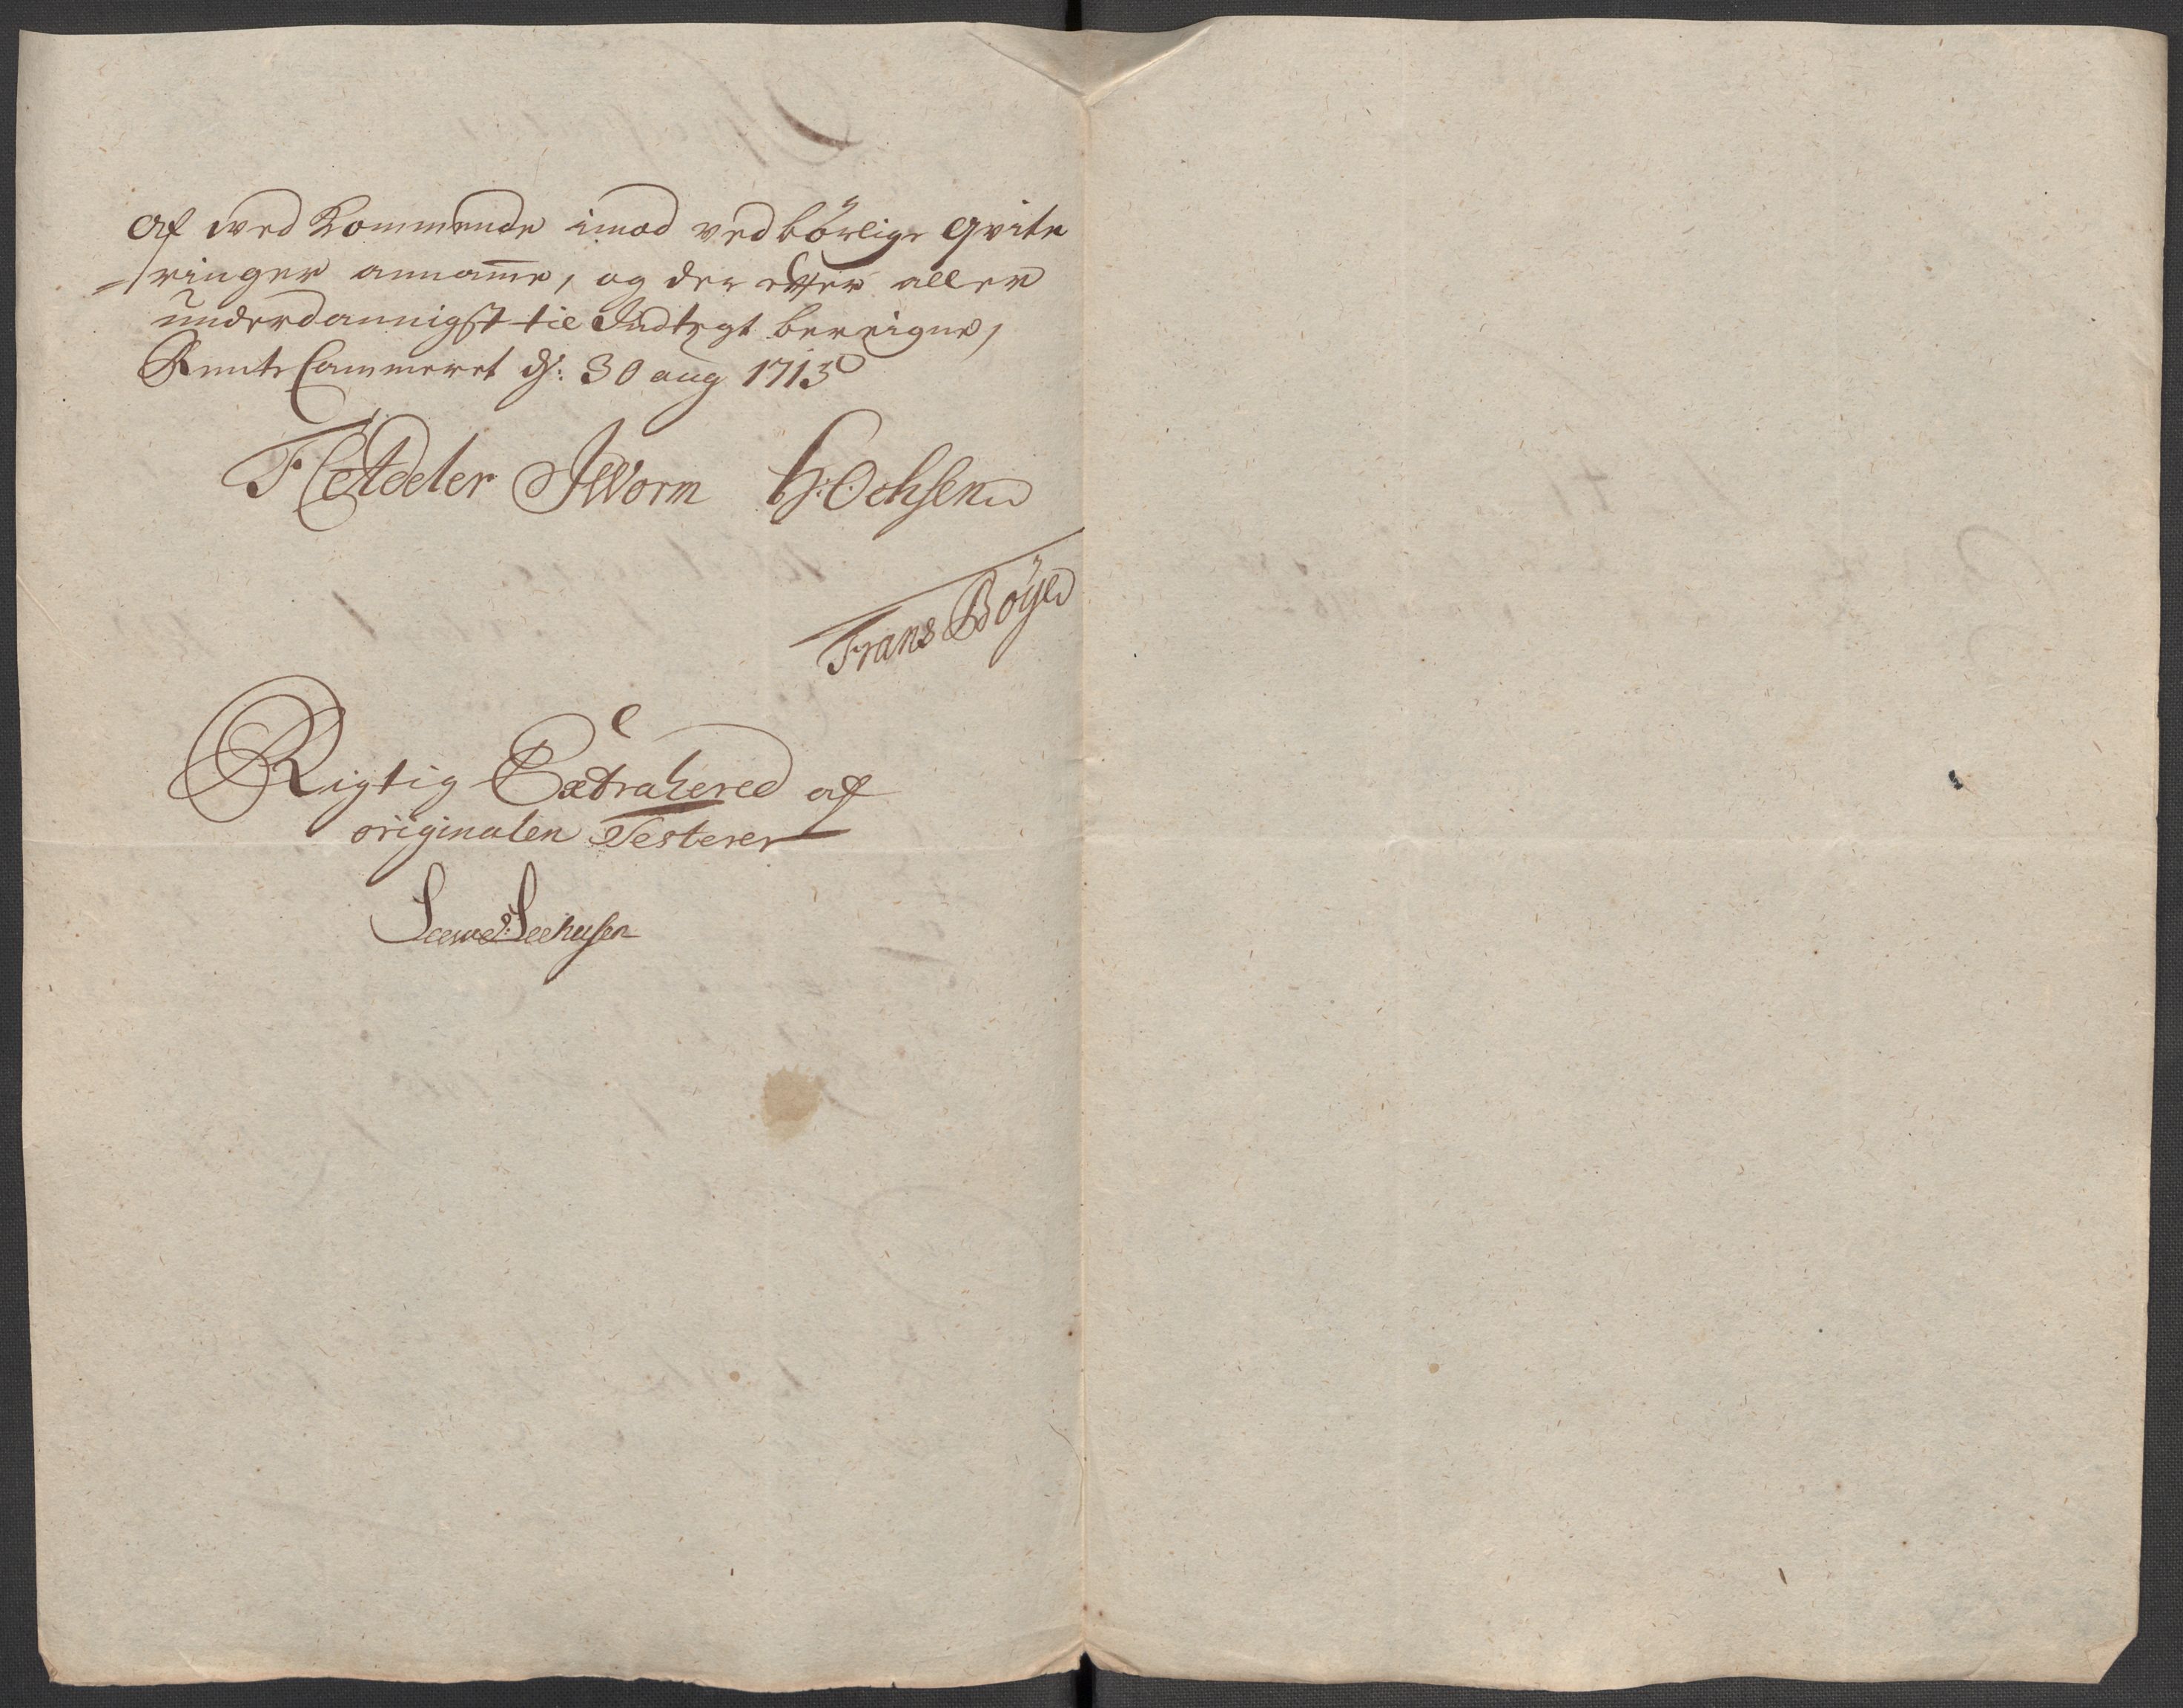 af ved Kommende imod vedbörlige qvite
ringer annamme, og der efter aller
underdannigst til Indtegt bereigne,
Rente Cammeret d: 30 aug 1713
F C Adeler J Worm H: Ochsen
Frans Böyen
Rigtig Extrahered af
originalen Testerer
Seehusen